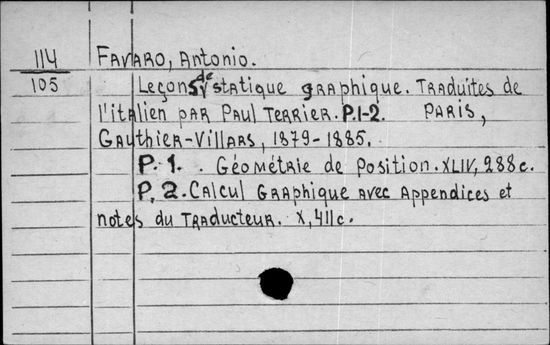 114 Favaro, Antonio.
105 Leçons de statique graphique. Traduites de
l'italien par Paul Terrier. P.1-2. Paris,
Gauthier-Villars, 1879-1885.
P. 1. . Géométrie de position. XLIV, 288c.
P. 2. Calcul graphique avec appendices et
notes du traducteur. X, 411c.